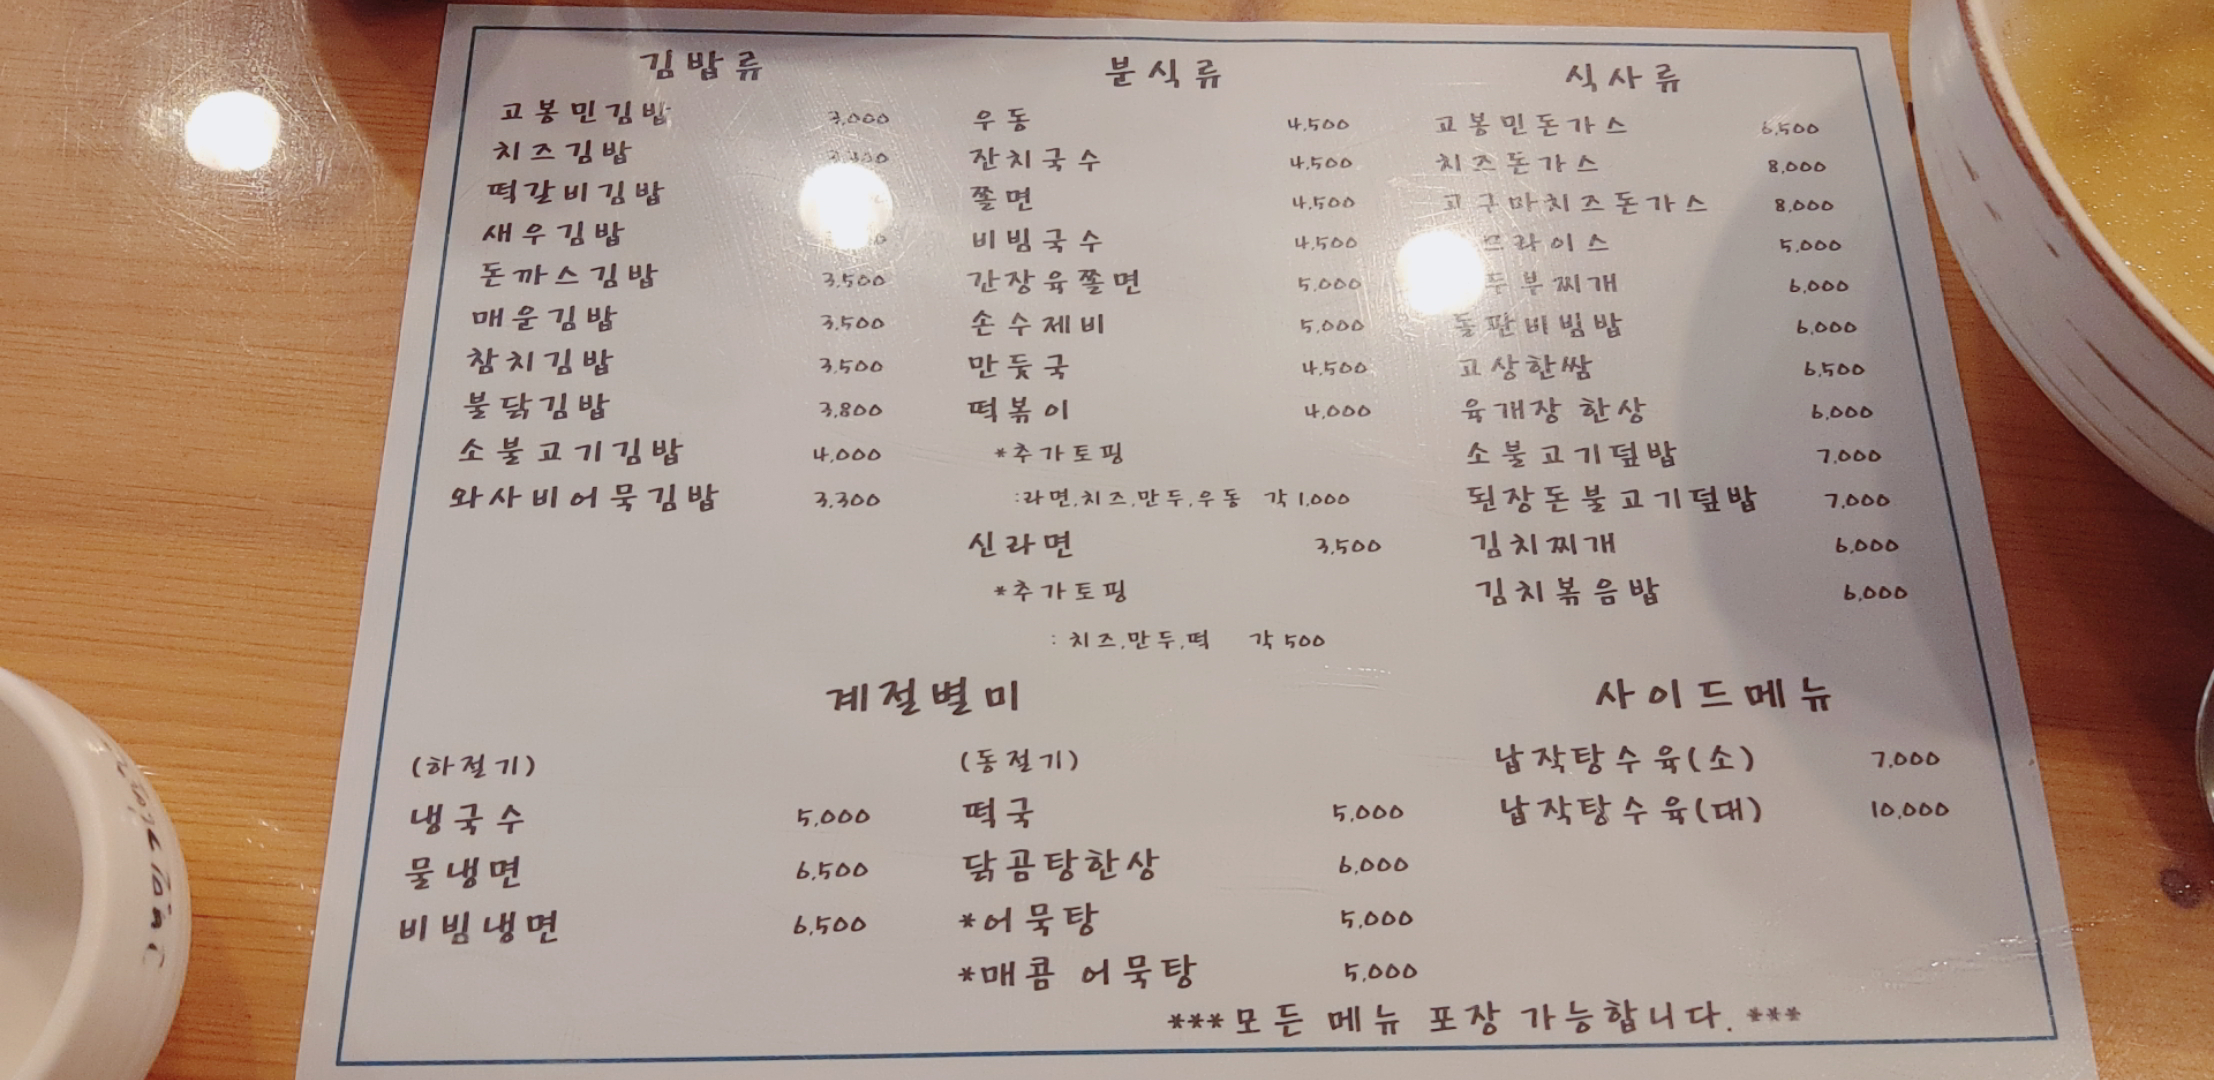 김밥류
교봉민김밥 3,000
치즈김밥
떡갈비김밥
새우김밥
돈까스김밥 3,500
매운김밥 3,500
참치김밥 3,500
불닭김밥 3,800
소불고기김밥 4,000
와사비어묵김밥 3,300
분식류
우동 4,500
잔치국수 4,500
쫄면 4,500
비빔국수 4,500
간장육쫄면 5,000
손수제비 5,000
만둣국 4,500
떡볶이 4,000
*추가토핑
:라면,치즈,만두,우동 각 1,000
신라면 3,500
*추가토핑
: 치즈,만두,떡 각 500
식사류
교봉민돈가스 6,500
치즈돈가스 8,000
고구마치즈돈가스 8,000
므라이스 5,000
두부찌개 6,000
돌판비빔밥 6,000
고상한쌈 6,500
육개장 한상 6,000
소불고기덮밥 7,000
된장돈불고기덮밥 7,000
김치찌개 6,000
김치볶음밥 6,000
계절별미
(하절기)
냉국수 5,000
물냉면 6,500
비빔냉면 6,500
(동절기)
떡국 5,000
닭곰탕한상 6,000
*어묵탕 5,000
*매콤 어묵탕 5,000
사이드메뉴
납작탕수육(소) 7,000
납작탕수육(대) 10,000
***모든 메뉴 포장 가능합니다.***